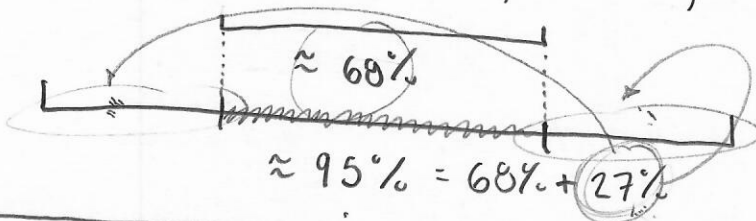 ≈ 68%
≈ 95% = 68% + 27%